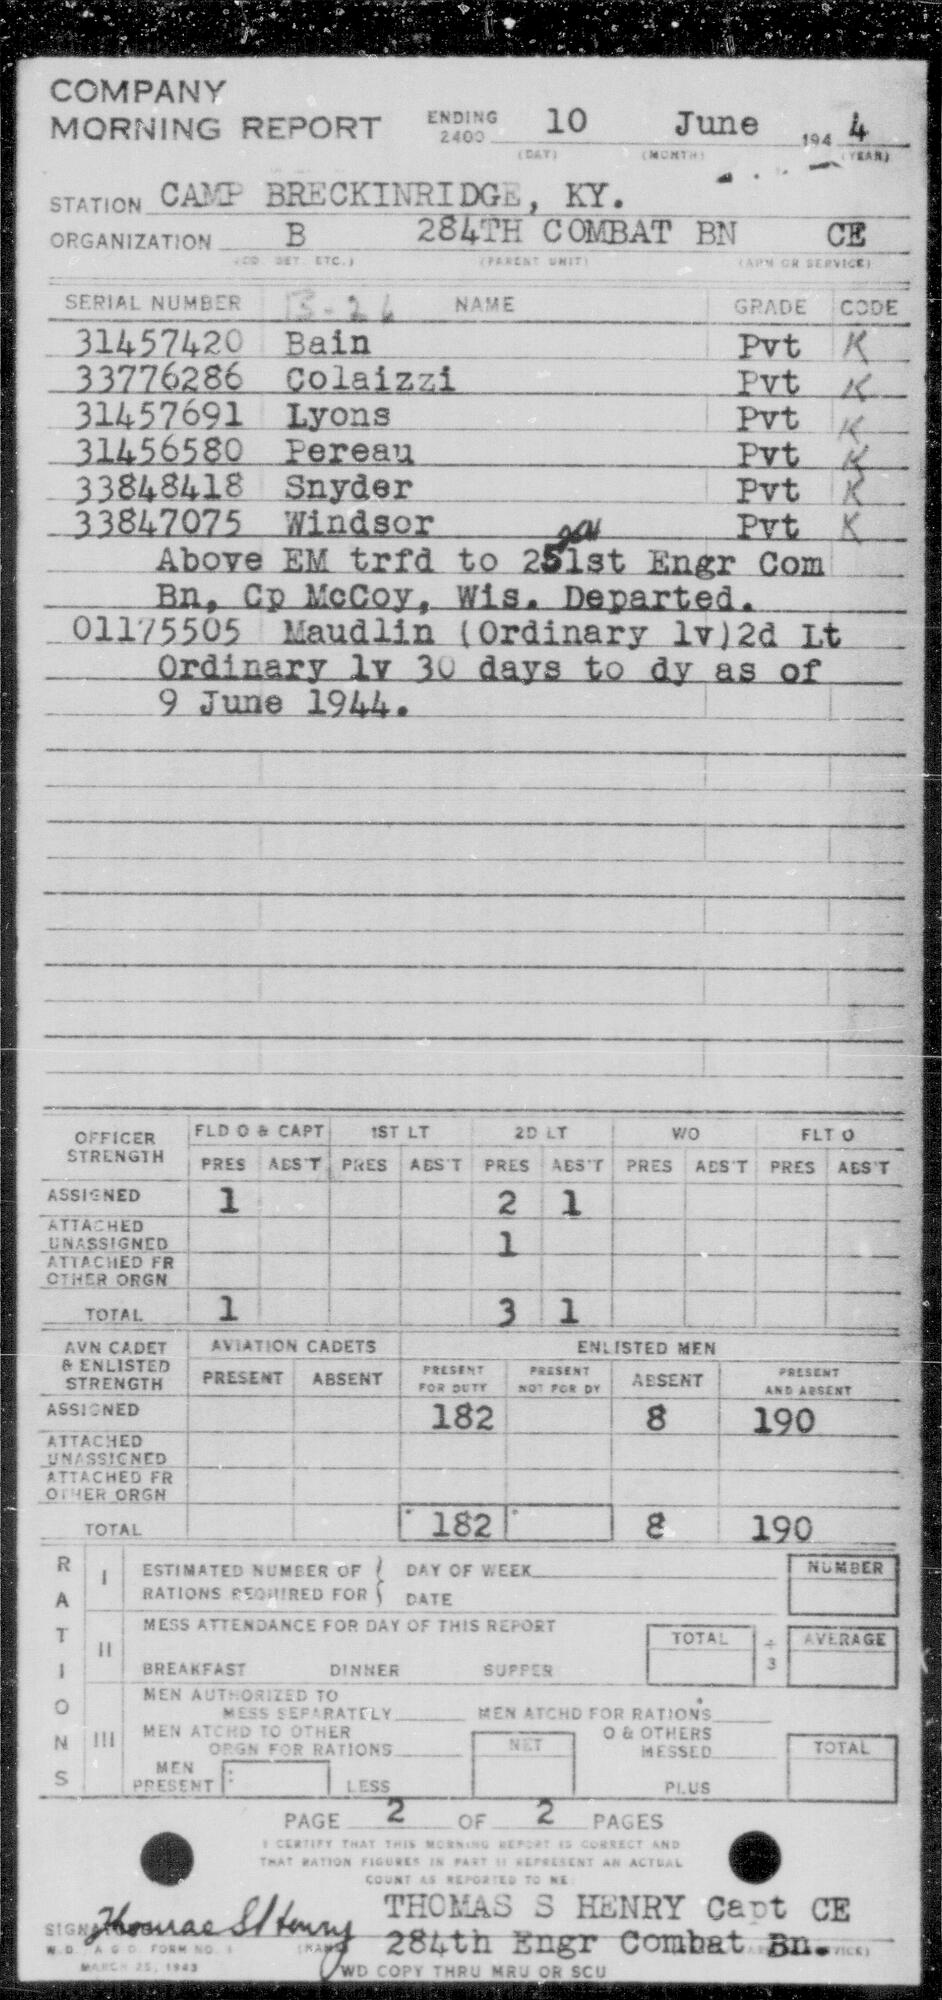 COMPANY
MORNING REPORT ENDING 2400 10 June 194 4
(DAY) (MONTH) (YEAR)
STATION CAMP BRECKINRIDGE, KY.
ORGANIZATION B 284TH COMBAT BN CE
(CO. DET. ETC.) (PARENT UNIT) (ARM OR SERVICE)
SERIAL NUMBER B-26 NAME GRADE CODE
31457420 Bain Pvt K
33776286 Colaizzi Pvt K
31457691 Lyons Pvt K
31456580 Pereau Pvt K
33848418 Snyder Pvt K
33847075 Windsor Pvt K
Above EM trfd to 251st Engr Com
Bn, Cp McCoy, Wis. Departed.
01175505 Maudlin (Ordinary lv)2d Lt
Ordinary lv 30 days to dy as of
9 June 1944.
OFFICER STRENGTH FLD O & CAPT 1ST LT 2D LT W/O FLT O
PRES ABS'T PRES ABS'T PRES ABS'T PRES ABS'T PRES ABS'T
ASSIGNED 1 2 1
ATTACHED UNASSIGNED 1
ATTACHED FR OTHER ORGN
TOTAL 1 3 1
AVN CADET & ENLISTED STRENGTH AVIATION CADETS ENLISTED MEN
PRESENT ABSENT PRESENT FOR DUTY PRESENT NOT FOR DY ABSENT PRESENT AND ABSENT
ASSIGNED 182 8 190
ATTACHED UNASSIGNED
ATTACHED FR OTHER ORGN
TOTAL 182 8 190
RATIONS
I ESTIMATED NUMBER OF RATIONS REQUIRED FOR { DAY OF WEEK NUMBER
DATE
II MESS ATTENDANCE FOR DAY OF THIS REPORT TOTAL ÷ 3 AVERAGE
BREAKFAST DINNER SUPPER
III MEN AUTHORIZED TO MESS SEPARATELY MEN ATCHD FOR RATIONS
MEN ATCHD TO OTHER ORGN FOR RATIONS NET O & OTHERS MESSED TOTAL
MEN PRESENT : LESS PLUS
PAGE 2 OF 2 PAGES
I CERTIFY THAT THIS MORNING REPORT IS CORRECT AND
THAT RATION FIGURES IN PART II REPRESENT AN ACTUAL
COUNT AS REPORTED TO ME:
THOMAS S HENRY Capt CE
SIGNATURE Thomas S Henry 284th Engr Combat Bn.
W. D. A G O FORM NO. 1 (NAME)
MARCH 25, 1943 WD COPY THRU MRU OR SCU